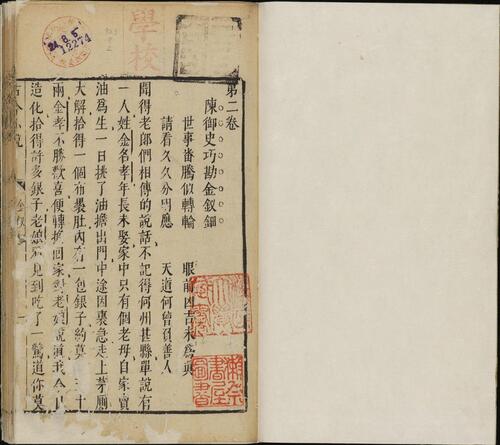 第二卷
陳御史巧勘金釵鈿
世事番騰似轉輪　眼前凶吉未為真
請看久久分明應　天道何曾負善人
聞得老郎們相傳的說話不記得何州甚縣單說有
一人姓金名孝年長未娶家中只有個老母自家賣
油為生一日挑了油擔出門中途因裏急走上茅廁
大解拾得一個布裹肚內有一包銀子約莫有三十
兩金孝不勝歡喜便轉擔回家對老娘說道我今日
造化拾得許多銀子老娘看見到吃了一驚道你莫
古今小說
學校
24.8.5
12274
圖書